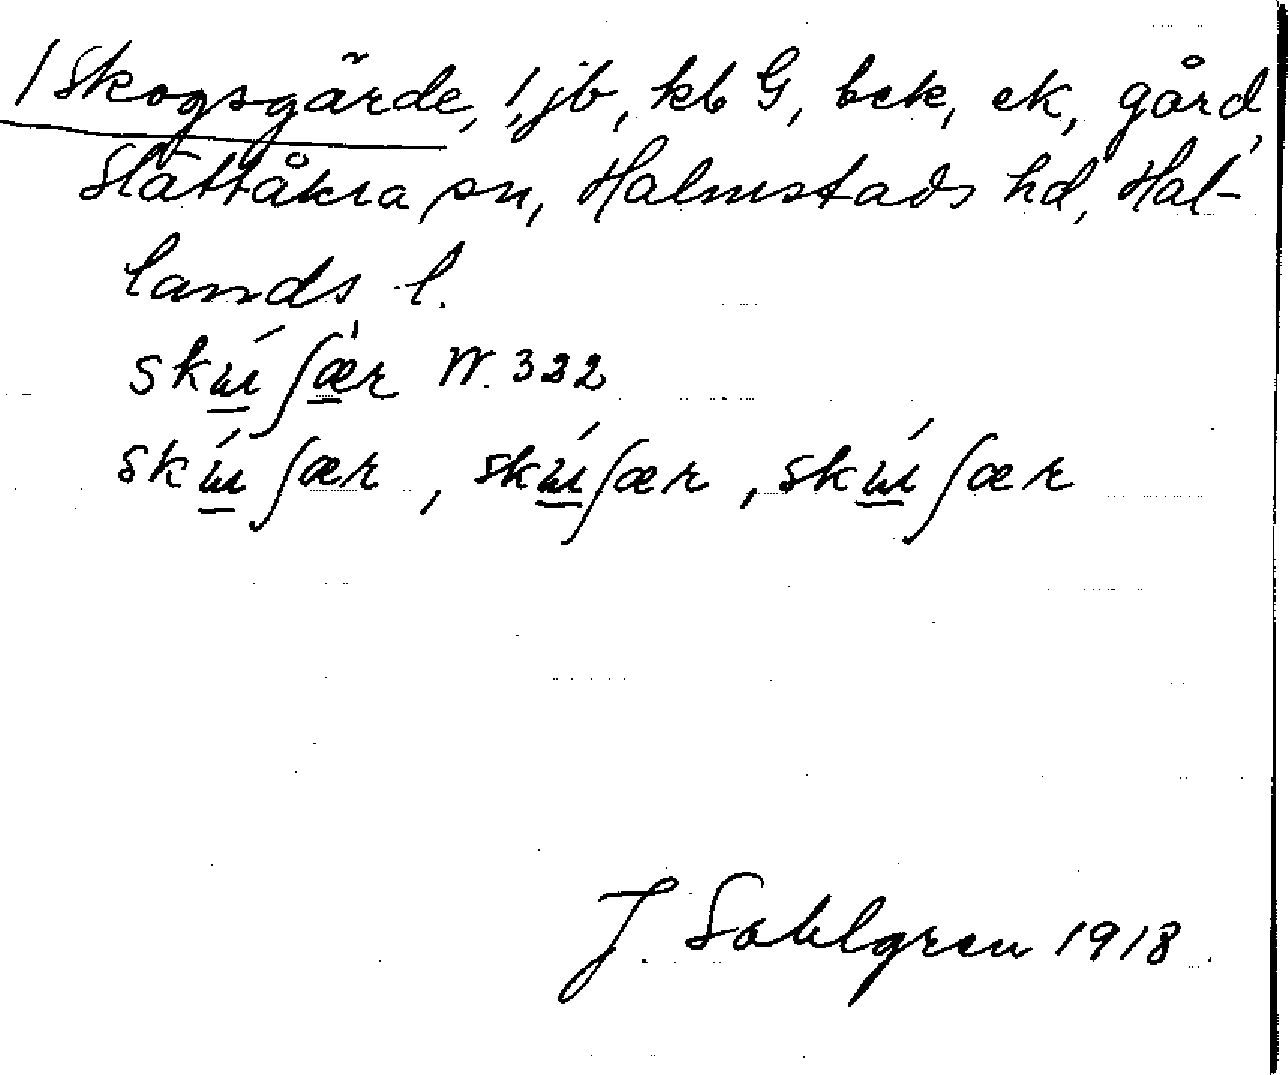 1 Skogsgärde, 1, jb, kb G, bek, ek, gård,
Slättåkra sn, Halmstads hd, Hal-
lands l.
skɯ́ʃæ̀r W. 322
skɯ́ʃær, skɯ́ʃær, skɯ́ʃær
J. Sahlgren 1918.